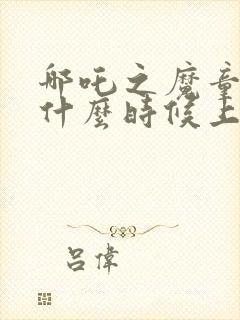 哪吒之魔童
什麼時候上
呂偉